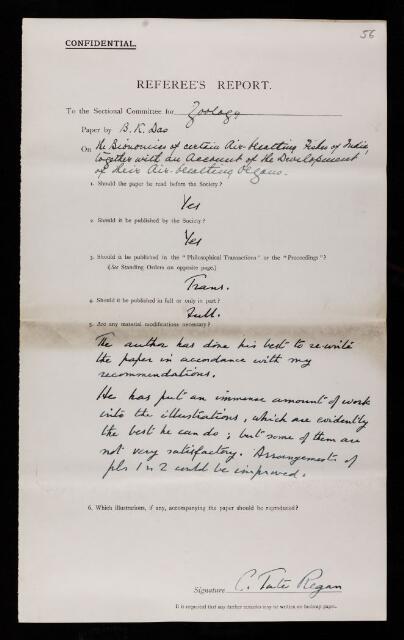 56
CONFIDENTIAL.
REFEREE'S REPORT.
To the Sectional Committee for Zoology
Paper by B. K. Das
On the Bionomics of certain Air-breathing Fishes of India,
together with an Account of the Development
of their Air-breathing Organs.
1. Should the paper be read before the Society?
Yes
2. Should it be published by the Society?
Yes
3. Should it be published in the "Philosophical Transactions" or the "Proceedings"?
(See Standing Orders on opposite page.)
Trans.
4. Should it be published in full or only in part?
Full.
5. Are any material modifications necessary?
The author has done his best to re-write
the paper in accordance with my
recommendations.
He has put an immense amount of work
into the illustrations, which are evidently
the best he can do; but some of them are
not very satisfactory. Arrangement of
pls 1 & 2 could be improved.
6. Which illustrations, if any, accompanying the paper should be reproduced?
Signature C. Tate Regan
It is requested that any further remarks may be written on foolscap paper.